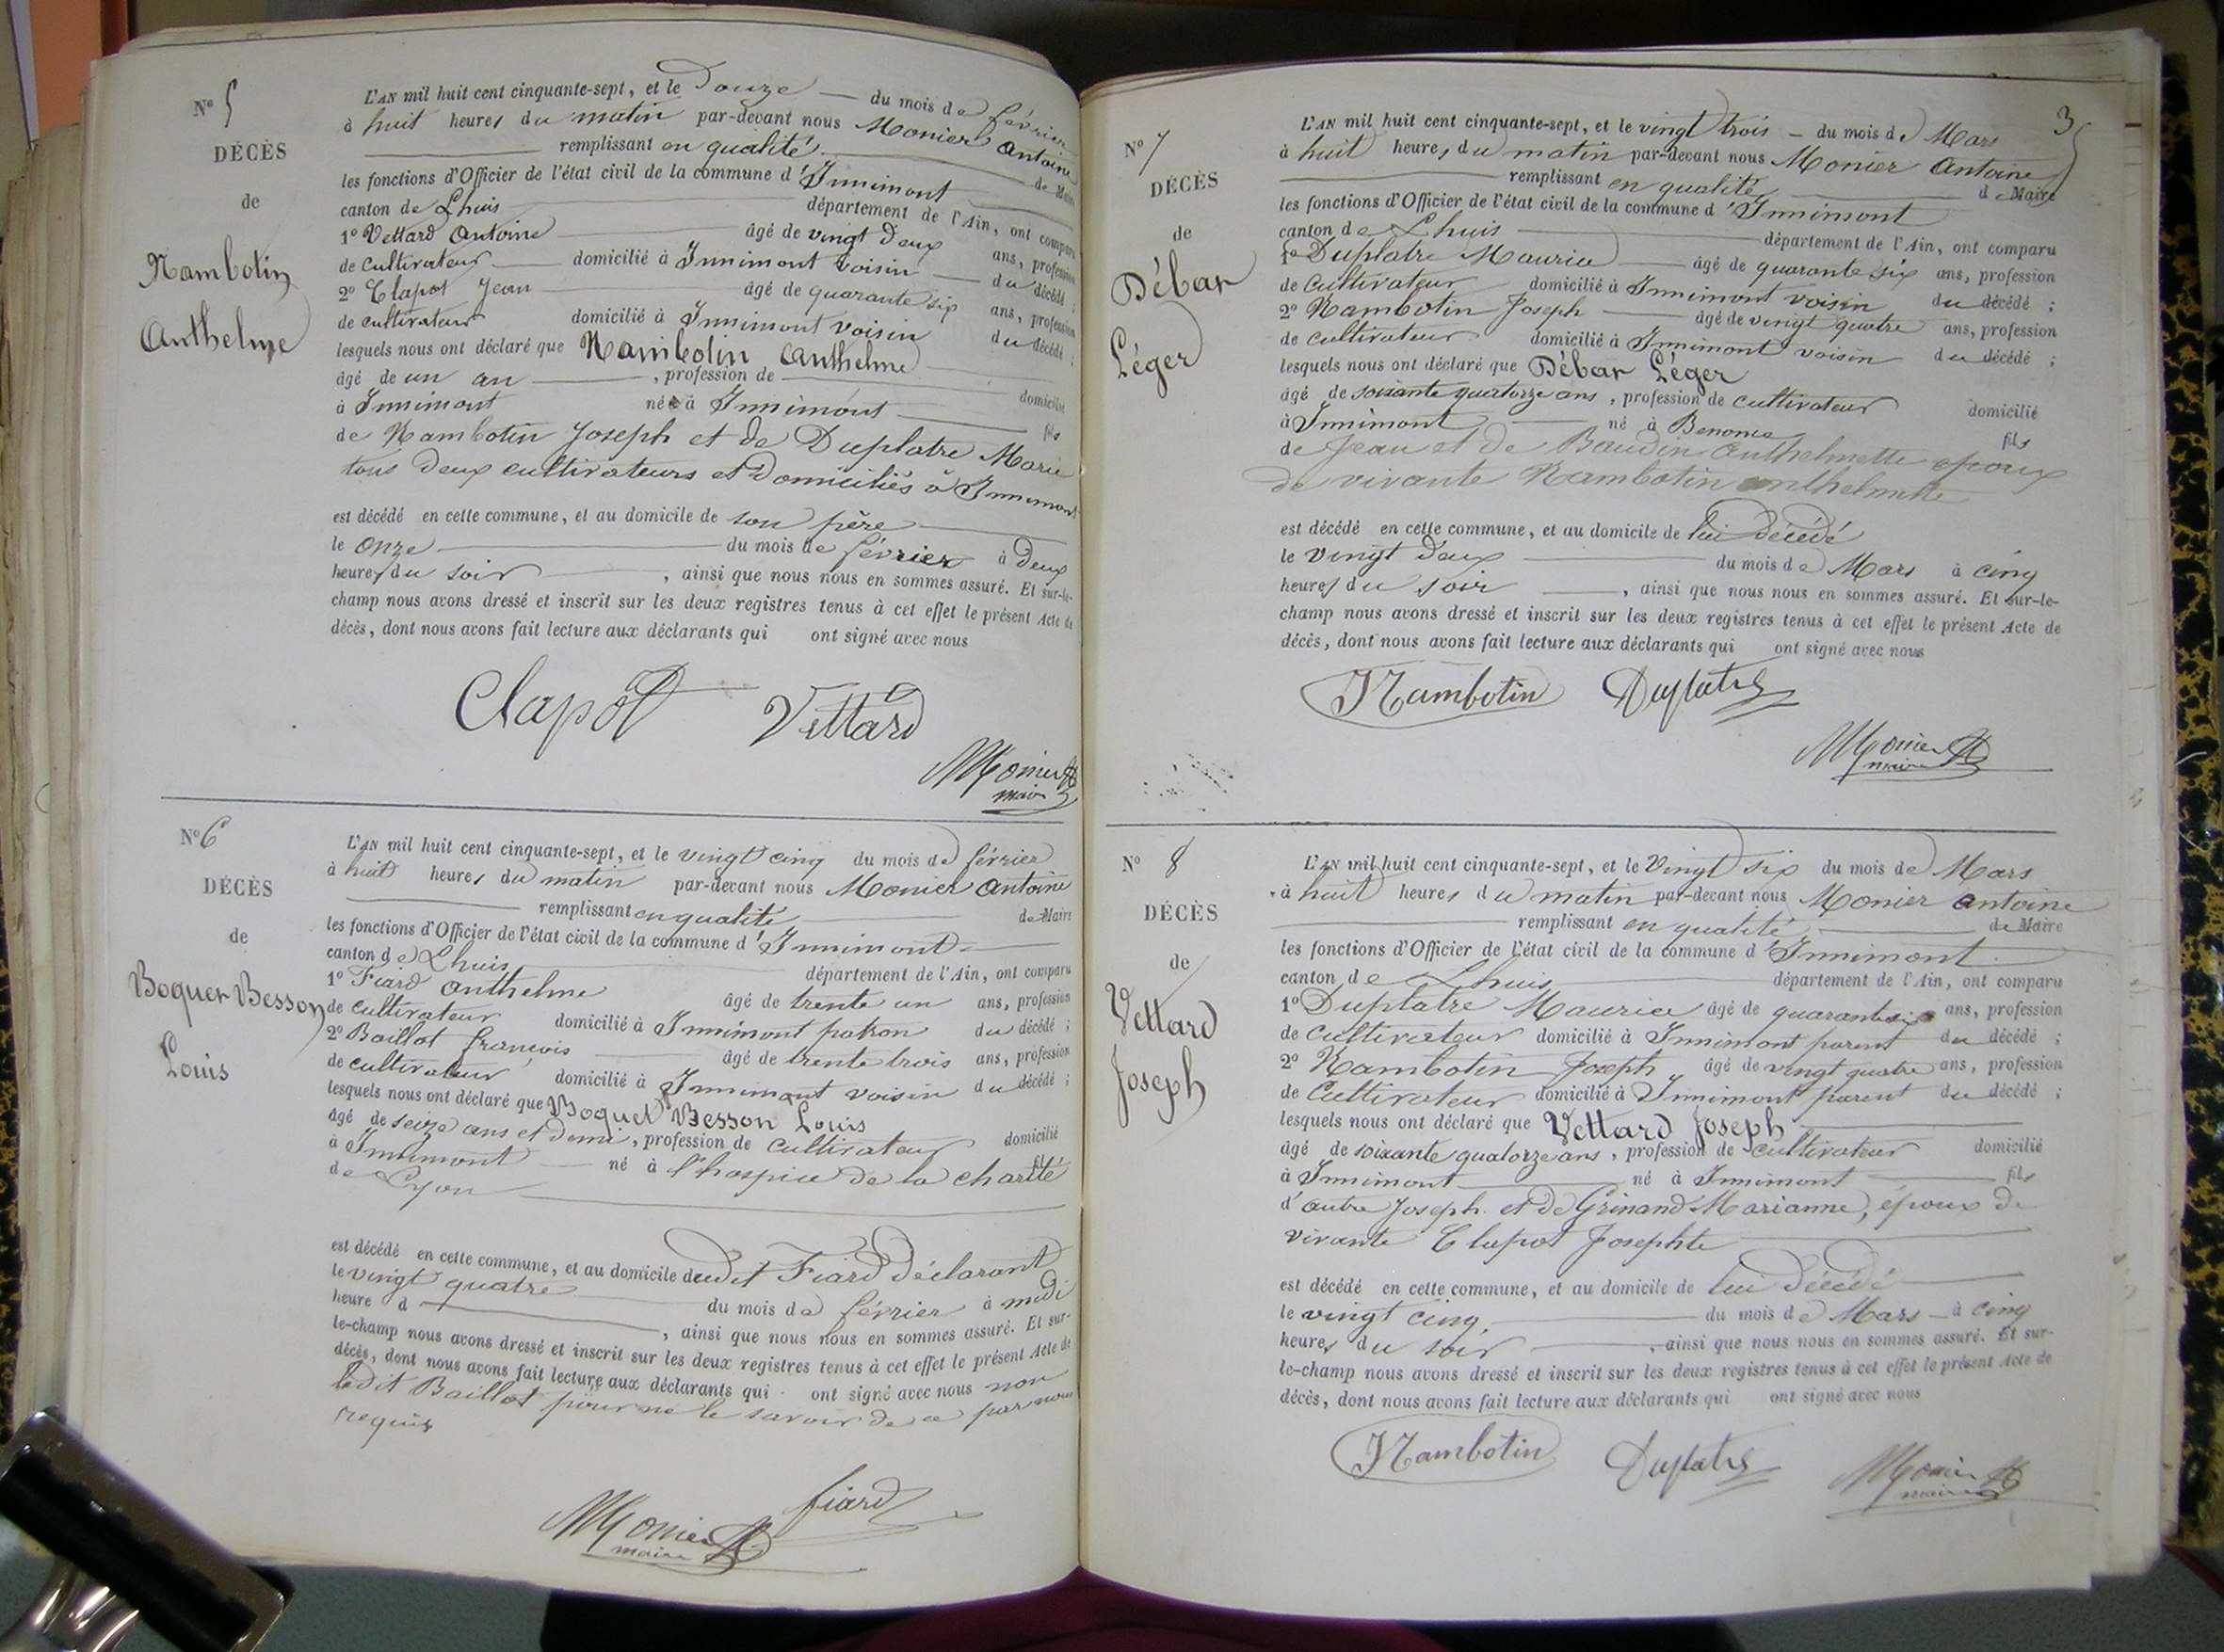 N° 5
DÉCÈS
de
Nambotin
Anthelme
L'AN mil huit cent cinquante-sept, et le Douze — du mois de février
à huit heures du matin par-devant nous Monier Antoine
remplissant en qualité de Maire
les fonctions d'Officier de l'état civil de la commune d'Innimont
canton de Lhuis département de l'Ain, ont comparu
1° Vettard Antoine âgé de vingt Deux ans, profession
de Cultivateur domicilié à Innimont voisin du décédé ;
2° Clapot Jean âgé de quarante six ans, profession
de cultivateur domicilié à Innimont voisin du décédé ;
lesquels nous ont déclaré que Nambotin Anthelme
âgé de un an , profession de domicilié
à Innimont né à Innimont fils
de Nambotin Joseph et de Duplatre Marie
tous deux cultivateurs et Domiciliés à Innimont
est décédé en cette commune, et au domicile de son père
le onze du mois de février à deux
heures du soir , ainsi que nous nous en sommes assuré. Et sur-le-
champ nous avons dressé et inscrit sur les deux registres tenus à cet effet le présent Acte de
décès, dont nous avons fait lecture aux déclarants qui ont signé avec nous
Clapot Vettard
Monier
maire
N° 6
DÉCÈS
de
Boquet Besson
Louis
L'AN mil huit cent cinquante-sept, et le vingt cinq du mois de février
à huit heures du matin par-devant nous Monier Antoine
remplissant en qualité de Maire
les fonctions d'Officier de l'état civil de la commune d'Innimont
canton de Lhuis département de l'Ain, ont comparu
1° Fiard Anthelme âgé de trente un ans, profession
de cultivateur domicilié à Innimont patron du décédé ;
2° Baillot françois âgé de trente trois ans, profession
de cultivateur domicilié à Innimont voisin du décédé ;
lesquels nous ont déclaré que Boquet Besson Louis
âgé de seize ans et demi, profession de cultivateur domicilié
à Innimont né à l'hospice de la charité fils
de Lyon
est décédé en cette commune, et au domicile dudit Fiard déclarant
le vingt quatre du mois de février à midi
heure d , ainsi que nous nous en sommes assuré. Et sur-
le-champ nous avons dressé et inscrit sur les deux registres tenus à cet effet le présent Acte de
décès, dont nous avons fait lecture aux déclarants qui ont signé avec nous non
ledit Baillot pour ne le savoir de ce par nous
requis
Monier fiard
maire
3
N° 7
DÉCÈS
de
Débar
Léger
L'AN mil huit cent cinquante-sept, et le vingt trois — du mois de Mars
à huit heures du matin par-devant nous Monier Antoine
remplissant en qualité de Maire
les fonctions d'Officier de l'état civil de la commune d'Innimont
canton de Lhuis département de l'Ain, ont comparu
1° Duplatre Maurice âgé de quarante six ans, profession
de cultivateur domicilié à Innimont voisin du décédé ;
2° Nambotin Joseph âgé de vingt quatre ans, profession
de cultivateur domicilié à Innimont voisin du décédé ;
lesquels nous ont déclaré que Débar Léger
âgé de soixante quatorze ans, profession de cultivateur domicilié
à Innimont né à Benonce fils
de Jean et de Baudin Anthelmette epoux
de vivante Nambotin anthelmette
est décédé en cette commune, et au domicile de lui décédé
le vingt deux du mois de Mars à cinq
heures du soir , ainsi que nous nous en sommes assuré. Et sur-le-
champ nous avons dressé et inscrit sur les deux registres tenus à cet effet le présent Acte de
décès, dont nous avons fait lecture aux déclarants qui ont signé avec nous
Nambotin Duplatre
Monier
maire
N° 8
DÉCÈS
de
Vettard
Joseph
L'AN mil huit cent cinquante-sept, et le Vingt six du mois de Mars
à huit heures du matin par-devant nous Monier Antoine
remplissant en qualité de Maire
les fonctions d'Officier de l'état civil de la commune d'Innimont
canton de Lhuis département de l'Ain, ont comparu
1° Duplatre Maurice âgé de quarante six ans, profession
de cultivateur domicilié à Innimont parent du décédé ;
2° Nambotin Joseph âgé de vingt quatre ans, profession
de Cultivateur domicilié à Innimont parent du décédé ;
lesquels nous ont déclaré que Vettard Joseph
âgé de soixante quatorze ans, profession de cultivateur domicilié
à Innimont né à Innimont fils
d'autre Joseph et de Grinand Marianne, époux de
vivante Clapot Josephte
est décédé en cette commune, et au domicile de lui décédé
le vingt cinq du mois de Mars - à cinq
heures du soir , ainsi que nous nous en sommes assuré. Et sur-
le-champ nous avons dressé et inscrit sur les deux registres tenus à cet effet le présent Acte de
décès, dont nous avons fait lecture aux déclarants qui ont signé avec nous
Nambotin Duplatre Monier
maire